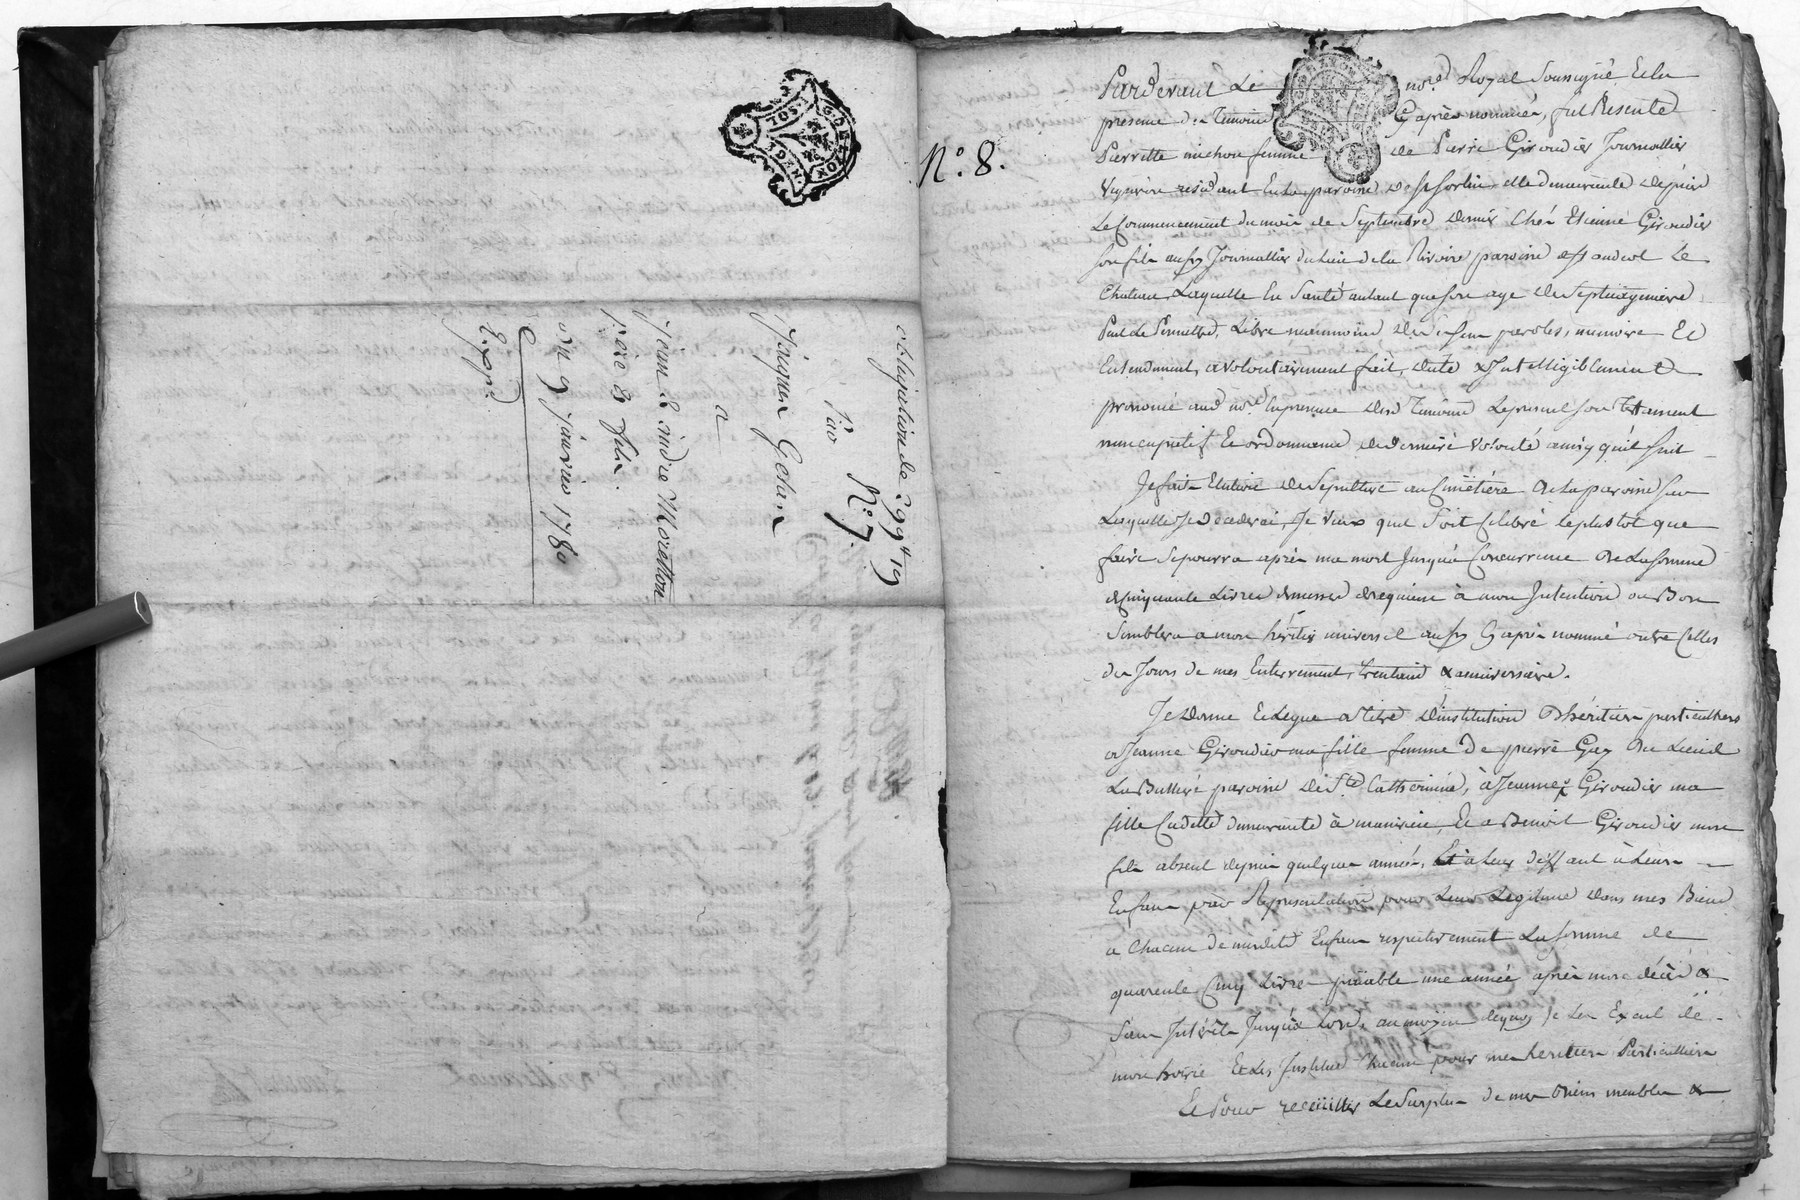 obligation de 299# 19
par N.° 7.
Jacques
a
Jean & André Moretton
Pere & fils
du 9 Janvier 1780
Exp.é
N.° 8.
Pardevant Le no.re Royal Soussigné Et en
presence des Temoins Cy après nommés, fut Presente
Pierrette michon femme de Pierre Giroudier Journallier
Vigneron residant En la paroisse de St Sorlin elle demeurante depuis
Le Commencement du mois de Septembre dernier Chés Etienne Giroudier
son fils aussy Journallier du Lieu de la Rivoire paroisse de St andeol Le
Chateau, Laquelle En Santé autant que son age de Septuagenaire
Peut Le Permettre, Libre neanmoins de ses sens paroles, memoire Et
Entendement, a volontairement fait, dicté & Intelligiblement
prononcé aud. no.re En presence desd. Temoins Le present son Testament
nuncupatif Et ordonnance de derniere volonté ainsy qu'il suit
Je fais Election de Sepulture au Cimétiére de la paroisse sur
Laquelle Je décederai, Je veux qu'il Soit celebré le plus tot que
faire Se pourra après ma mort Jusqu'a Concurrence de La somme
de cinquante Livres de messes de requiem à mon Intention ou Bon
Semblera a mon héritier universel aussy Cy après nommé outre Celles
des Jours de mes Enterrement, trentaine & anniversaire.
Je donne Et Legue a titre d'institution d'héritiers particuliers
a Jeanne Giroudier ma fille femme de pierre Guy du Lieu de
La Bussiére paroisse de Ste Catherine, à Jeanne Giroudier ma
fille Cadette demeurante à, Et a Benoit Giroudier mon
fils absent depuis quelques années, Et à Leur deffaut à Leurs
Enfans par Representation pour Leur Legitime dans mes Biens
a Chacun de mesdits Enfans respectivement La somme de
quarente Cinq Livres païable une année après mon décès &
Sans Interêts Jusqu'a Lors, au moyen dequoy Je Les Exclus de
mon hoirie Et Les Institue Chacun pour mes heritiers Particulliers
Et Pour recüillir Le Surplus de mes Biens meubles &